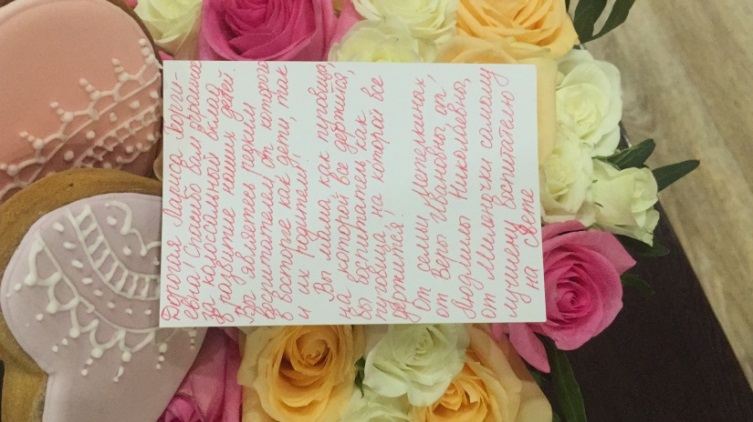 Дорогая Лариса Георги-
евна! Спасибо Вам огромное
за колоссальный вклад
в развитие наших детей.
Вы являетесь первым
воспитателем, от которого
в восторге как дети, так
и их родители!
Вы мама, как пуговица,
на которой все держится,
вы воспитатель, как
пуговица, на которой все
держится!
От семьи
от Веры Ивановны, от
Людмилы Николаевны,
от Миленочки самому
лучшему воспитателю
на свете